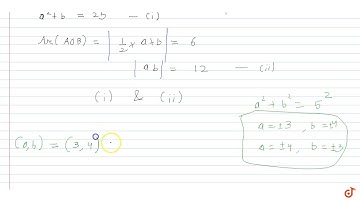 a² + b = 25 — (i)
Ar(AOB) = | 1/2 × a+b | = 6
| ab | = 12 — (ii)
(i) & (ii)
a² + b² = 5²
a = ±3 , b = ±4
a = ±4 , b = ±3
(a,b) = (3,4)